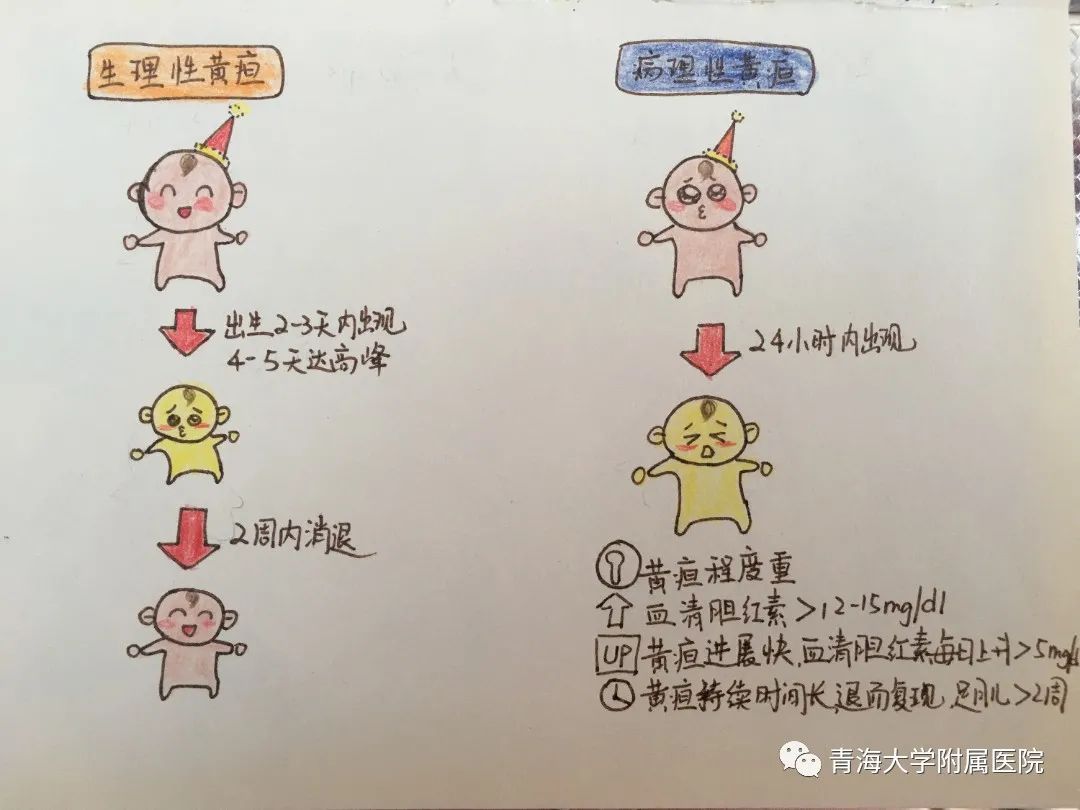 生理性黄疸
出生2-3天内出现
4-5天达高峰
2周内消退
病理性黄疸
24小时内出现
黄疸程度重
血清胆红素>12-15mg/dl
UP 黄疸进展快,血清胆红素每日上升>5mg/
黄疸持续时间长,退而复现,足月儿>2周
青海大学附属医院